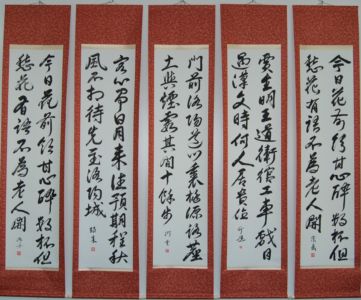 今日花前飲甘心醉數杯但
愁花有語不為老人開
賈生明王道衛綰工車戲同
遇漢文時何人居貴位
門前洛陽道門裏桃源路塵
土與煙霞其間十餘步
客心爭日月來往預期程秋
風不相待先至洛陽城
今日花前飲甘心醉數杯但
愁花有語不為老人開